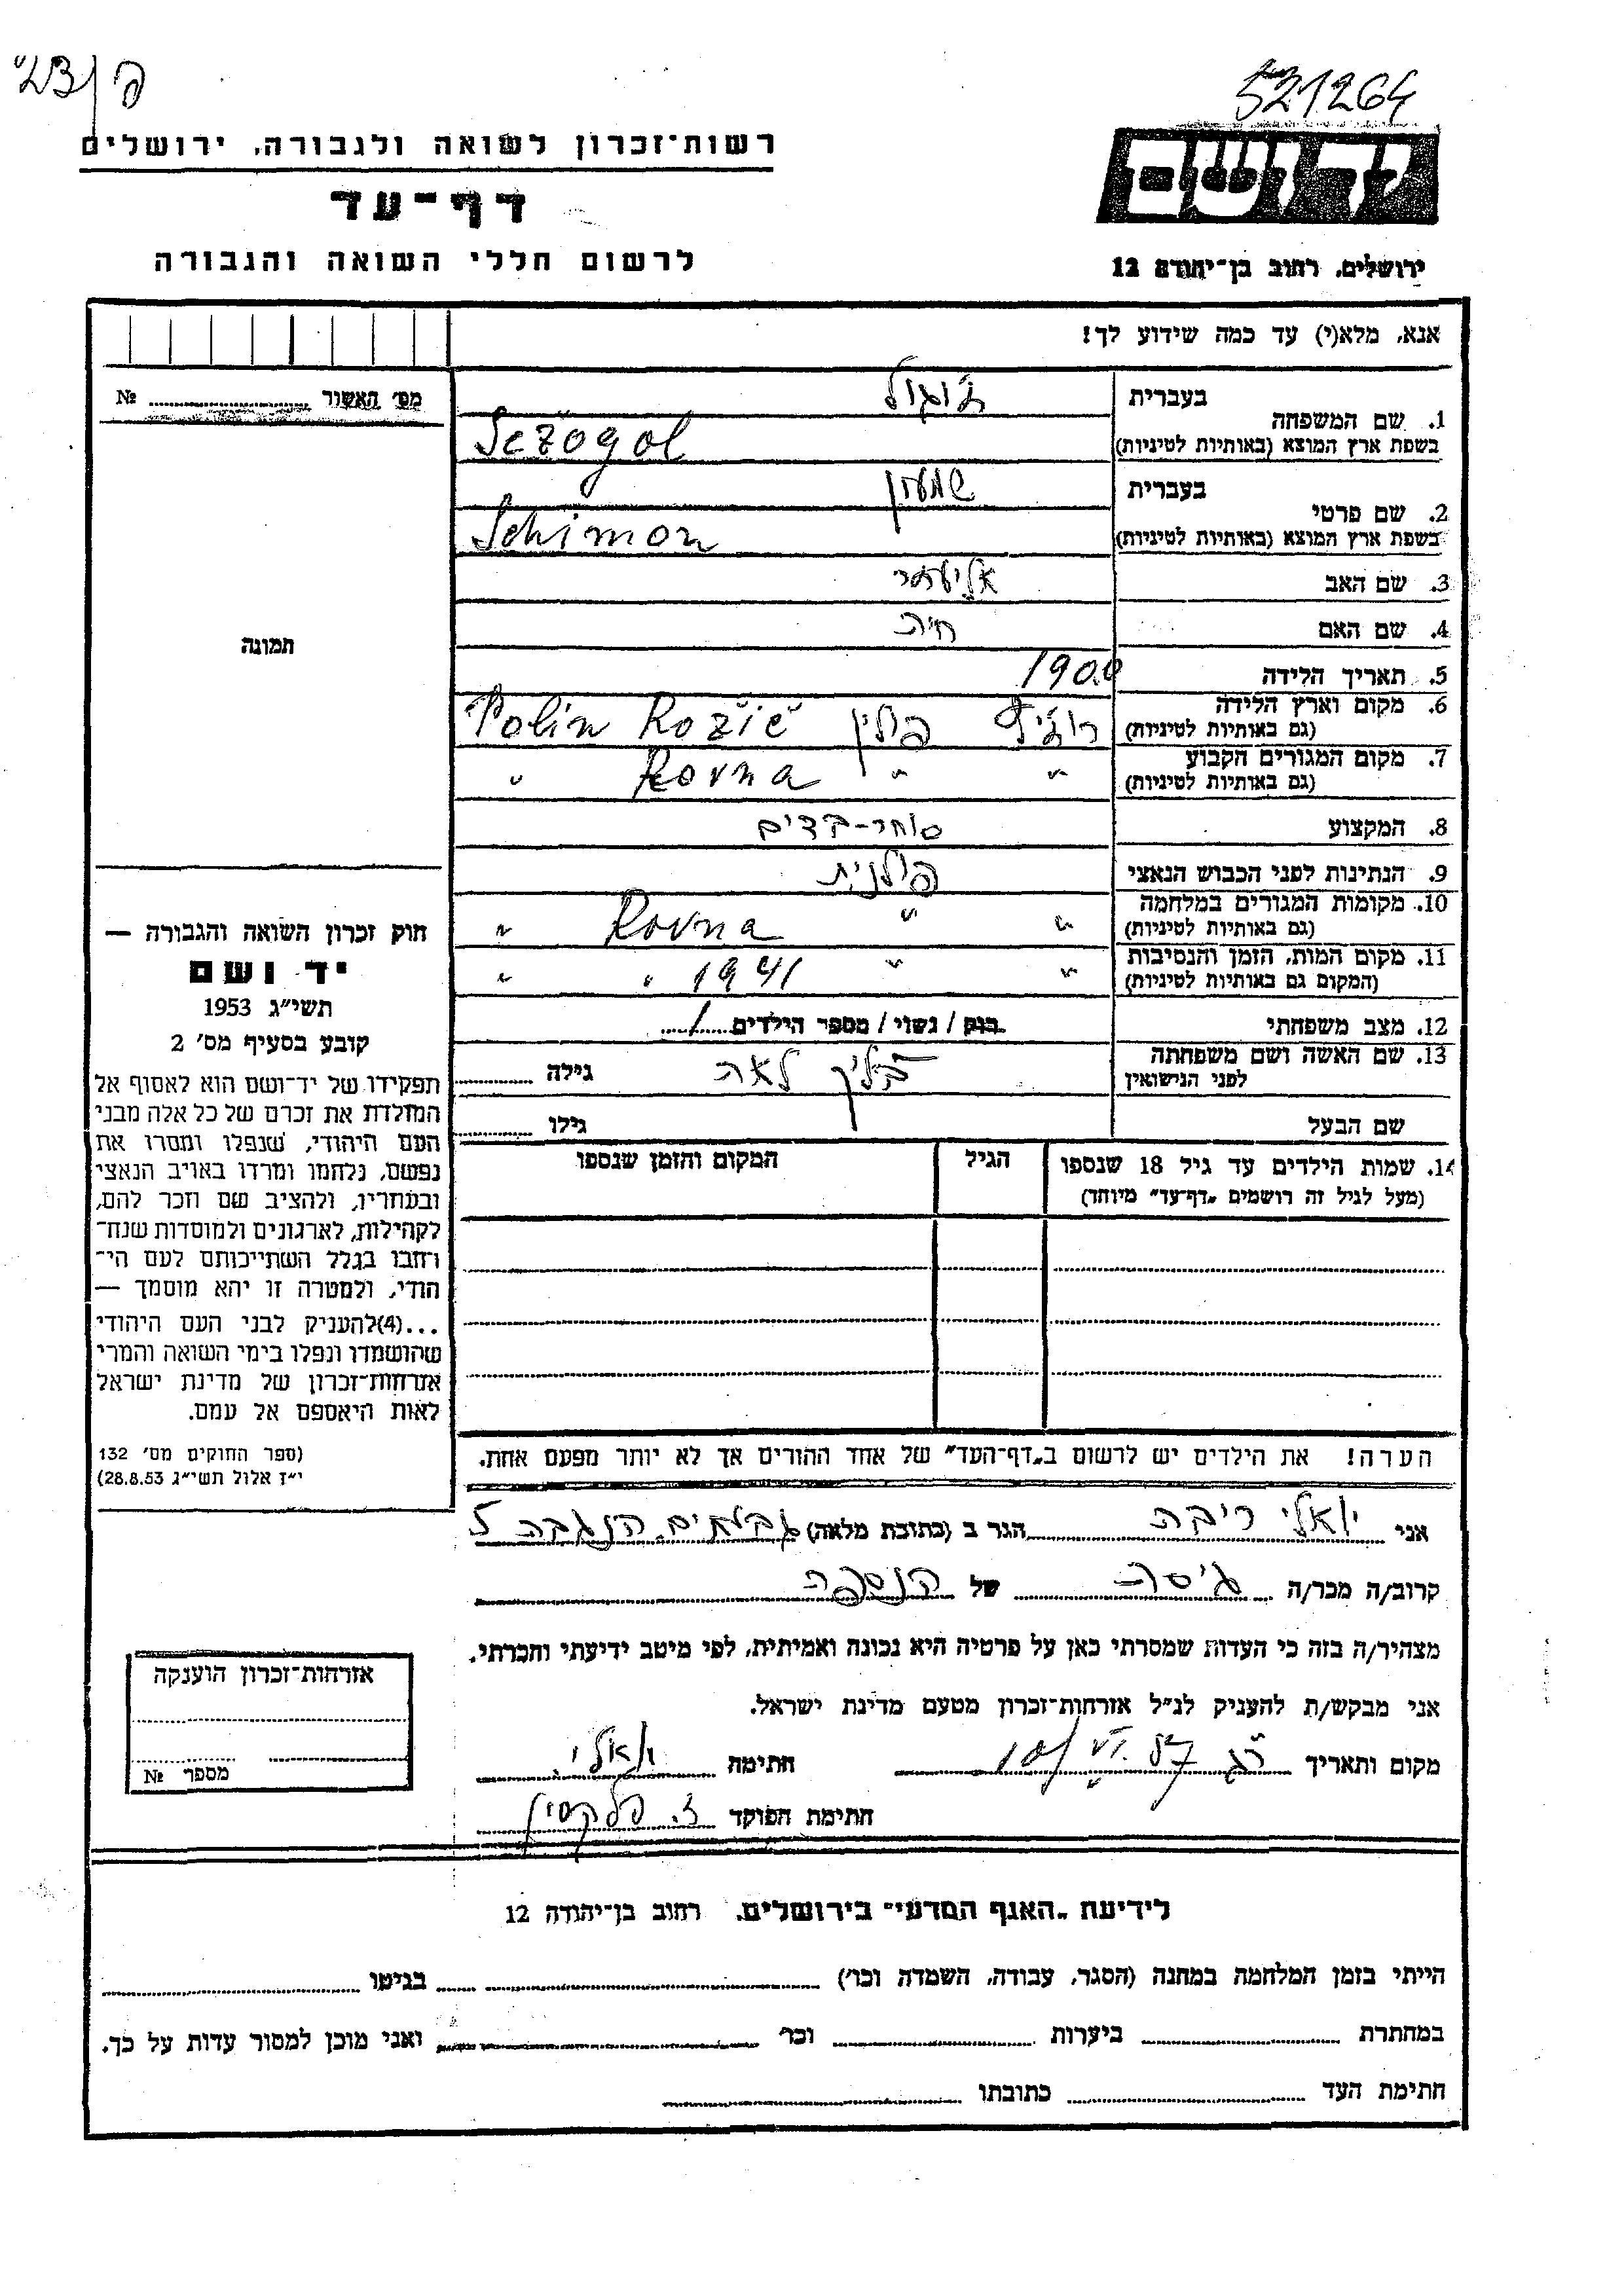 521264
רשות־זכרון לשואה ולגבורה, ירושלים
יד ושם
דף־עד
לרשום חללי השואה והגבורה
ירושלים, רחוב בן־יהודה 12
אנא, מלא(י) עד כמה שידוע לך!
מס׳ האשור № 
1. שם המשפחה
בעברית
בשפת ארץ המוצא (באותיות לטיניות) Sežogol
2. שם פרטי
בעברית שמעון
בשפת ארץ המוצא (באותיות לטיניות) Schimon
3. שם האב אליעזר
4. שם האם חיה
5. תאריך הלידה 1900
6. מקום וארץ הלידה
(גם באותיות לטיניות) פולין Polin Rožič
7. מקום המגורים הקבוע
(גם באותיות לטיניות) " " Rovna "
8. המקצוע סוחר-בדים
9. הנתינות לפני הכבוש הנאצי פולנית
10. מקומות המגורים במלחמה
(גם באותיות לטיניות) " " Rovna "
11. מקום המות, הזמן והנסיבות
(המקום גם באותיות לטיניות) " " 1941 " "
12. מצב משפחתי רווק / נשוי / מספר הילדים 1
13. שם האשה ושם משפחתה
לפני הנישואין לאה גילה
שם הבעל גילו
14. שמות הילדים עד גיל 18 שנספו
(מעל לגיל זה רושמים „דף־עד״ מיוחד)
הגיל
המקום והזמן שנספו
הערה! את הילדים יש לרשום ב„דף־העד״ של אחד ההורים אך לא יותר מפעם אחת.
תמונה
חוק זכרון השואה והגבורה —
יד ושם
תשי״ג 1953
קובע בסעיף מס׳ 2
תפקידו של יד־ושם הוא לאסוף אל
המולדת את זכרם של כל אלה מבני
העם היהודי, שנפלו ומסרו את
נפשם, נלחמו ומרדו באויב הנאצי
ובעוזריו, ולהציב שם וזכר להם,
לקהילות, לארגונים ולמוסדות שנח־
רחבו בגלל השתייכותם לעם הי־
הודי, ולמטרה זו יהא מוסמך —
...(4)להעניק לבני העם היהודי
שהושמדו ונפלו בימי השואה והמרי
אזרחות־זכרון של מדינת ישראל
לאות היאספם אל עמם.
(ספר החוקים מס׳ 132
י״ז אלול תשי״ג 28.8.53)
אני יואלי ריבה הגר ב (כתובת מלאה) גבעתיים הנגבה 5
קרוב/ה מכר/ה גיסה של הנספה
מצהיר/ה בזה כי העדות שמסרתי כאן על פרטיה היא נכונה ואמיתית, לפי מיטב ידיעתי והכרתי.
אני מבקש/ת להעניק לנ״ל אזרחות־זכרון מטעם מדינת ישראל.
מקום ותאריך חתימה יואלי
חתימת הפוקד
אזרחות־זכרון הוענקה
מספר №
לידיעת „האגף המדעי״ בירושלים, רחוב בן־יהודה 12
הייתי בזמן המלחמה במחנה (הסגר, עבודה, השמדה וכו׳) בגיטו
במחתרת ביערות וכו׳ ואני מוכן למסור עדות על כך.
חתימת העד כתובתו